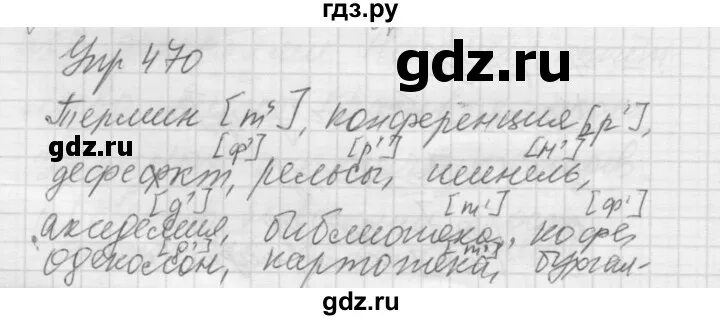 гдз.ру
gdz.ru
Упр 470
Термин [т'], конференция [р'],
gdz.ru
[ф'] [р'] [н']
дефефкт, рельсы, шинель,
[д'] [т'] [ф']
академия, библиотека, кофе,
[д'] [т']
одеколон, картотека, бухгал-
gdz.ru